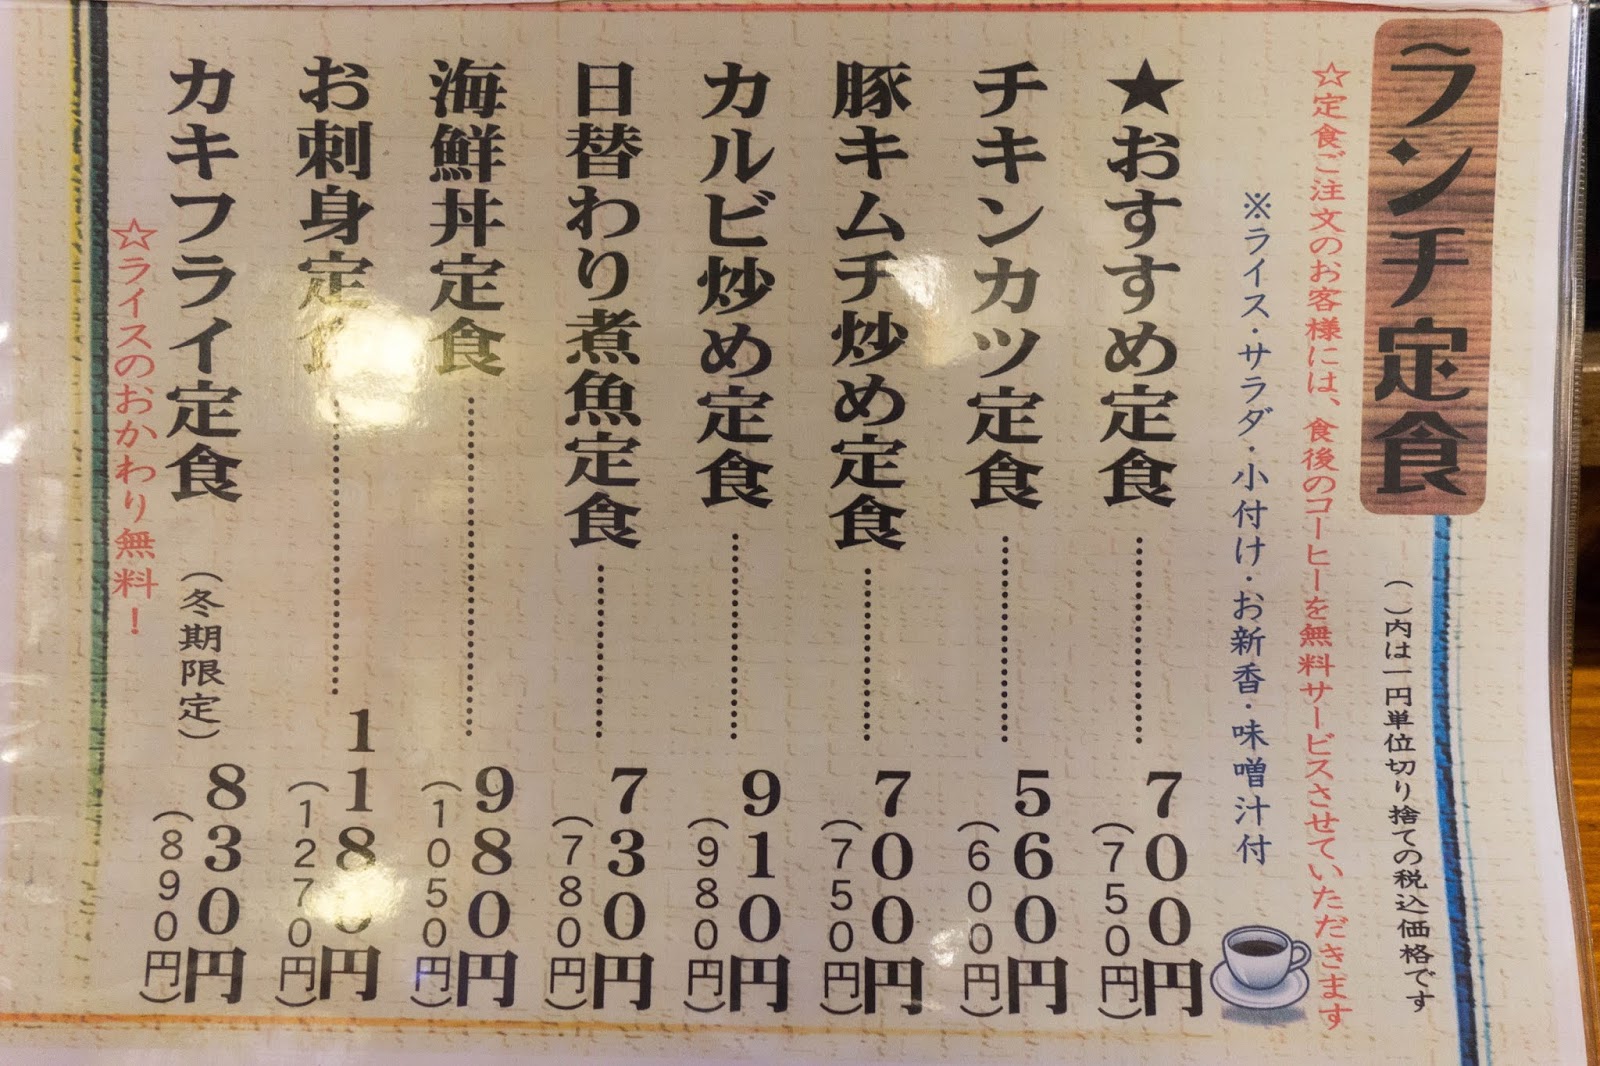 ランチ定食
( )内は一円単位切り捨ての税込価格です
☆定食ご注文のお客様には、食後のコーヒーを無料サービスさせていただきます
※ライス・サラダ・小付け・お新香・味噌汁付
★おすすめ定食 700円 (750円)
チキンカツ定食 560円 (600円)
豚キムチ炒め定食 700円 (750円)
カルビ炒め定食 910円 (980円)
日替わり煮魚定食 730円 (780円)
海鮮丼定食 980円 (1050円)
お刺身定食 1180円 (1270円)
カキフライ定食 (冬期限定) 830円 (890円)
☆ライスのおかわり無料！